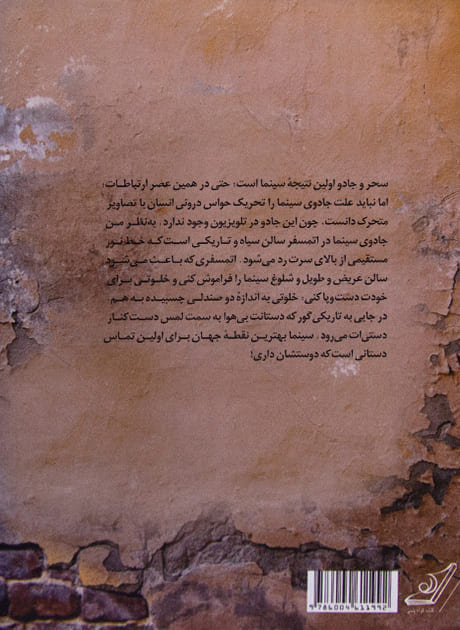 سحر و جادو اولین نتیجهٔ سینما است؛ حتی در همین عصر ارتباطات؛
اما نباید علت جادوی سینما را تحریک حواس درونی انسان با تصاویر
متحرک دانست، چون این جادو در تلویزیون وجود ندارد. به‌نظر من
جادوی سینما در اتمسفر سالن سیاه و تاریکی است که خط نور
مستقیمی از بالای سرت رد می‌شود. اتمسفری که باعث می‌شود
سالن عریض و طویل و شلوغ سینما را فراموش کنی و خلوتی برای
خودت دست‌وپا کنی؛ خلوتی به اندازهٔ دو صندلی چسبیده به هم
در جایی به تاریکی گور که دستانت بی‌هوا به سمت لمس دست کنار
دستی‌ات می‌رود. سینما بهترین نقطهٔ جهان برای اولین تماس
دستانی است که دوستشان داری!
9 786004 611992